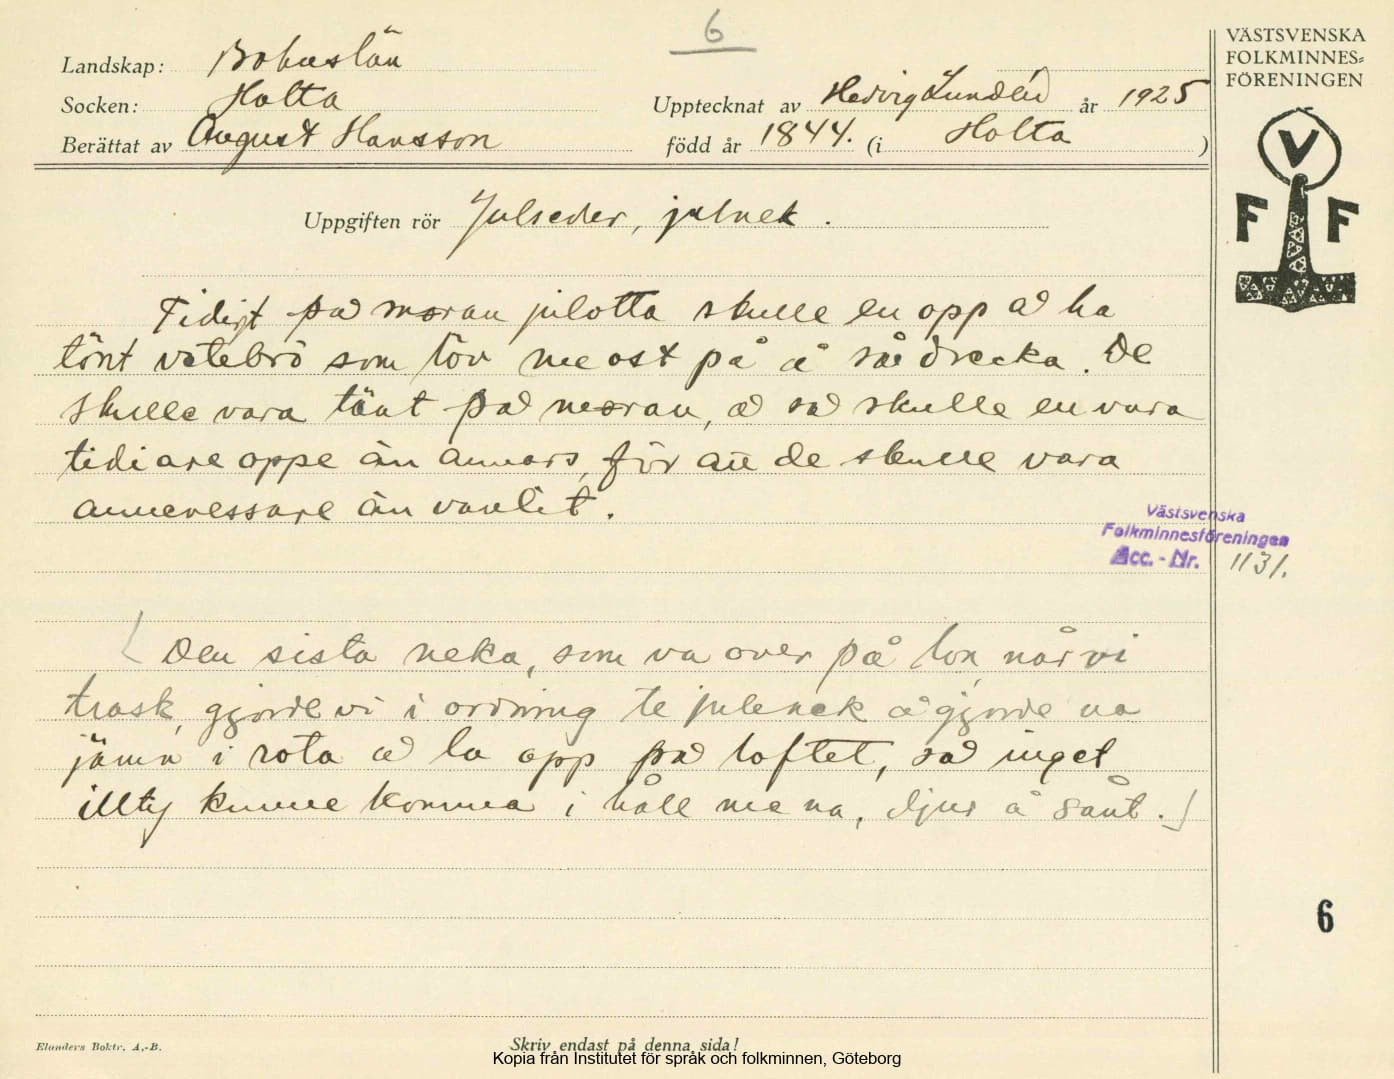 6
VÄSTSVENSKA
FOLKMINNES=
FÖRENINGEN
Landskap: Bohuslän
Socken: Holta
Upptecknat av Hedvig Lundén år 1925
Berättat av August Hansson
född år 1844. (i Holta )
V
F F
Uppgiften rör Julseder, julnek.
Tidigt på moran julotta skulle en opp å ha
tönt vetebrö som töv me ost på å så drecka. De
skulle vara tänt på moran, å så skulle en vara
tidiare oppe än annars, för att de skulle vara
anneressare än vanlit.
Västsvenska
Folkminnesföreningen
Acc.-Nr. 1131.
(Den sista neka, som va over på lon, når vi
trosk, gjorde vi i ordning te julenek å gjorde na
jämn i rota å la opp på loftet, så inget
illty kunne komma i håll me na, djur å sånt.)
6
Elanders Boktr. A.-B.
Skriv endast på denna sida!
Kopia från Institutet för språk och folkminnen, Göteborg